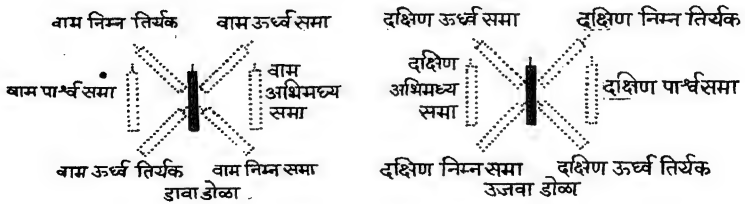 वाम निम्न तिर्यक
वाम ऊर्ध्व समा
वाम पार्श्व समा
वाम
अभिमध्य
समा
वाम ऊर्ध्व तिर्यक
वाम निम्न समा
डावा डोळा
दक्षिण ऊर्ध्व समा
दक्षिण निम्न तिर्यक
दक्षिण
अभिमध्य
समा
दक्षिण पार्श्वसमा
दक्षिण निम्न समा
दक्षिण ऊर्ध्व तिर्यक
उजवा डोळा